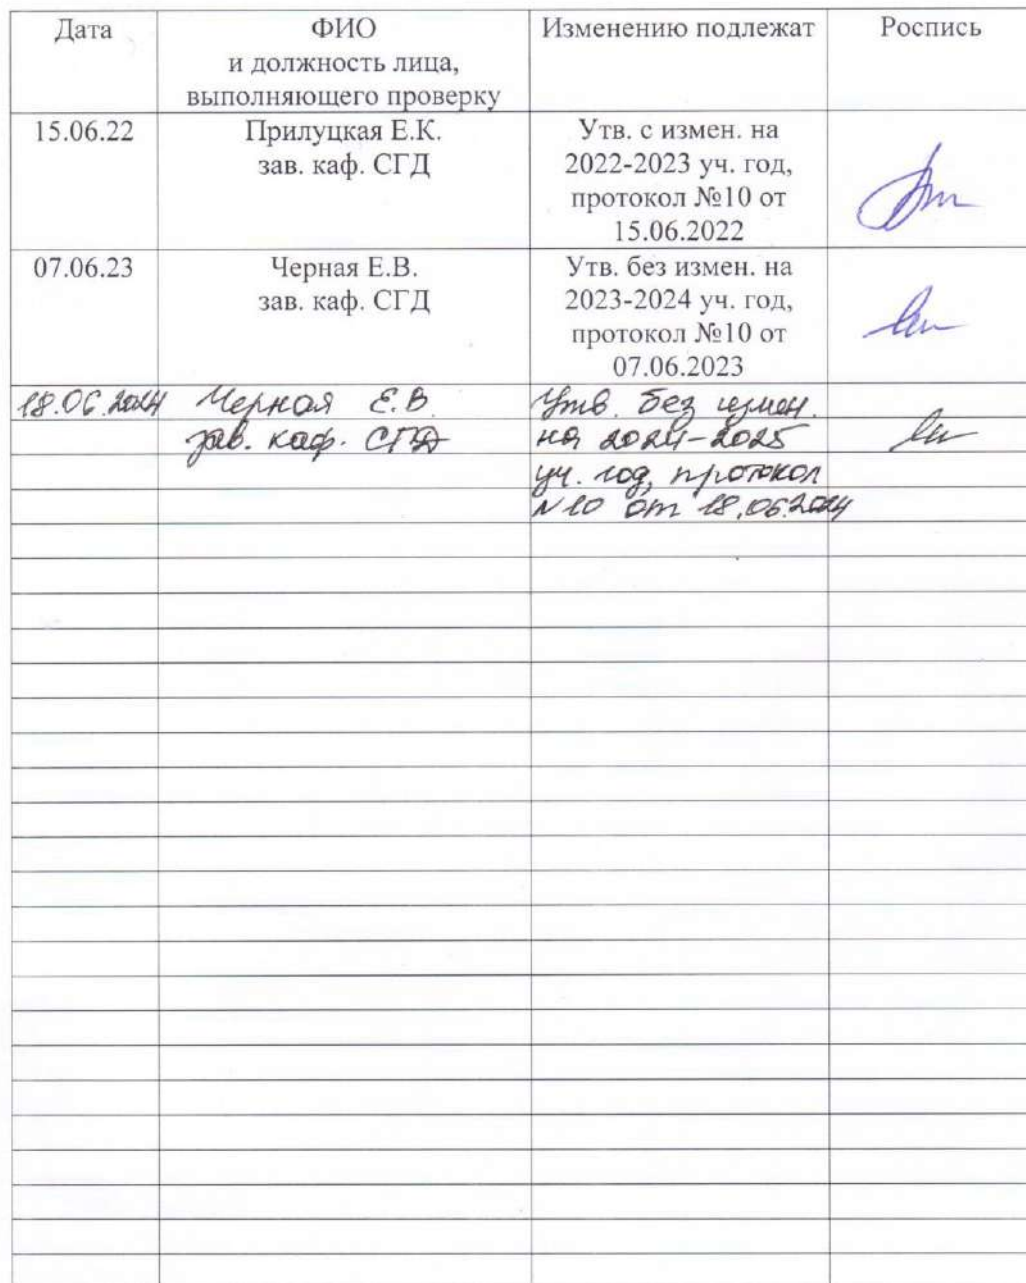 Дата
ФИО
и должность лица,
выполняющего проверку
Изменению подлежат
Роспись
15.06.22
Прилуцкая Е.К.
зав. каф. СГД
Утв. с измен. на
2022-2023 уч. год,
протокол №10 от
15.06.2022
07.06.23
Черная Е.В.
зав. каф. СГД
Утв. без измен. на
2023-2024 уч. год,
протокол №10 от
07.06.2023
18.06.2024
Черная Е.В.
зав. каф. СГД
Утв. без измен.
на 2024-2025
уч. год, протокол
N10 от 18.06.2024